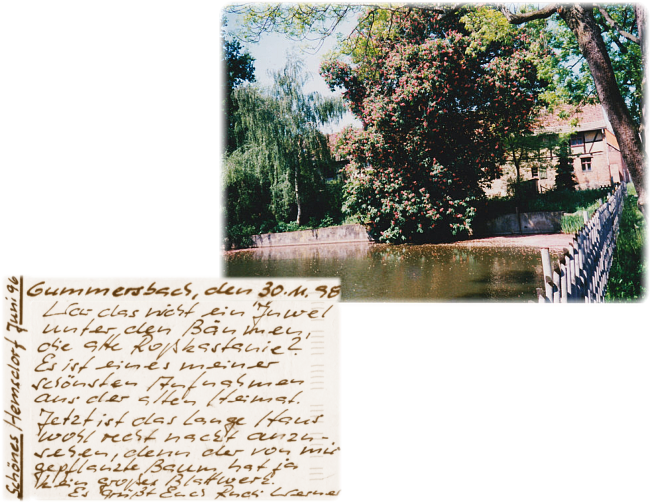 Gummersbach, den 30.11.98
War das nicht ein Juwel
unter den Bäumen,
die alte Roßkastanie?
Es ist eines meiner
schönsten Aufnahmen
aus der alten Heimat.
Jetzt ist das lange Haus
wohl recht nackt anzu-
sehen, denn der von mir
gepflanzte Baum hat ja
kein großes Blattwerk.
Es grüßt Euch Rudi Werner
Schönes Hemsdorf Juni 96